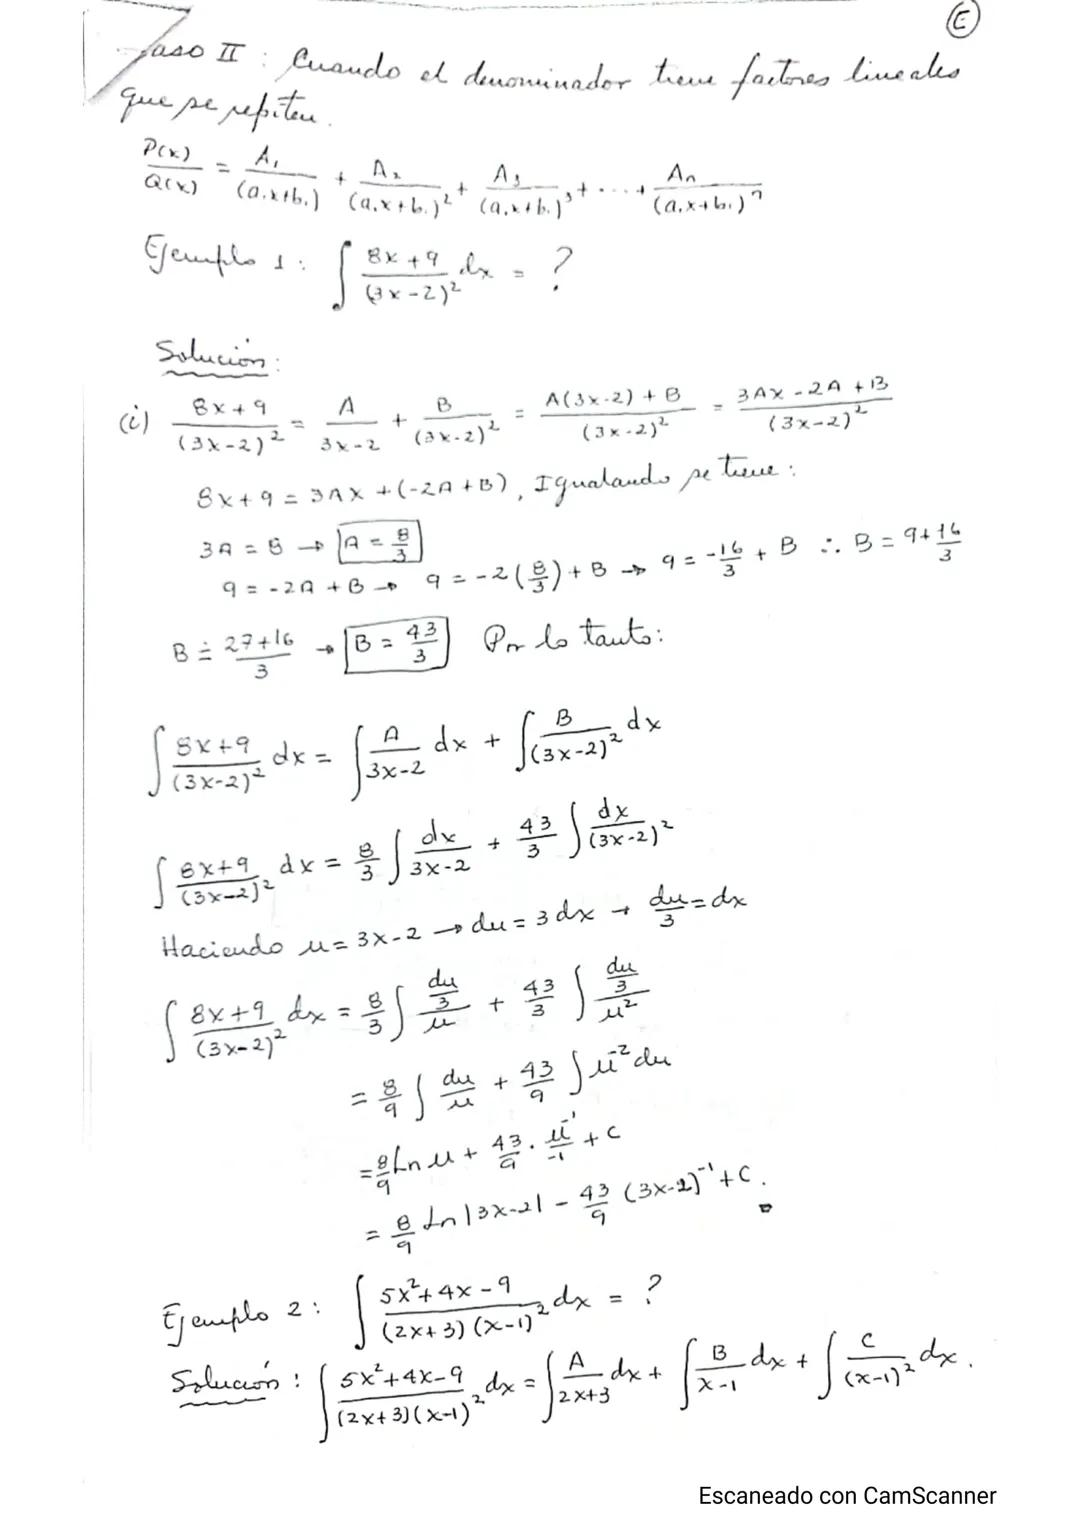 E
Caso II : Cuando el denominador tiene factores lineales
que se repiten.
P(x)/Q(x) = A₁/(a₁x+b₁) + A₂/(a₁x+b₁)² + A₃/(a₁x+b₁)³ + ... + Aₙ/(a₁x+b₁)ⁿ
Ejemplo 1 : ∫ (8x+9)/(3x-2)² dx = ?
Solución:
(i) (8x+9)/(3x-2)² = A/(3x-2) + B/(3x-2)² = (A(3x-2) + B)/(3x-2)² = (3Ax - 2A + B)/(3x-2)²
8x+9 = 3Ax + (-2A+B), Igualando se tiene :
3A = 8 → A = 8/3
9 = -2A + B → 9 = -2(8/3) + B → 9 = -16/3 + B ∴ B = 9 + 16/3
B = (27+16)/3 → B = 43/3 Por lo tanto:
∫ (8x+9)/(3x-2)² dx = ∫ A/(3x-2) dx + ∫ B/(3x-2)² dx
∫ (8x+9)/(3x-2)² dx = 8/3 ∫ dx/(3x-2) + 43/3 ∫ dx/(3x-2)²
Haciendo u = 3x-2 → du = 3dx → du/3 = dx
∫ (8x+9)/(3x-2)² dx = 8/3 ∫ (du/3)/u + 43/3 ∫ (du/3)/u²
= 8/9 ∫ du/u + 43/9 ∫ u⁻² du
= 8/9 Ln u + 43/9 . u⁻¹/-1 + C
= 8/9 Ln |3x-2| - 43/9 (3x-2)⁻¹ + C.
Ejemplo 2 : ∫ (5x²+4x-9)/((2x+3)(x-1)²) dx = ?
Solución : ∫ (5x²+4x-9)/((2x+3)(x-1)²) dx = ∫ A/(2x+3) dx + ∫ B/(x-1) dx + ∫ C/(x-1)² dx.
Escaneado con CamScanner